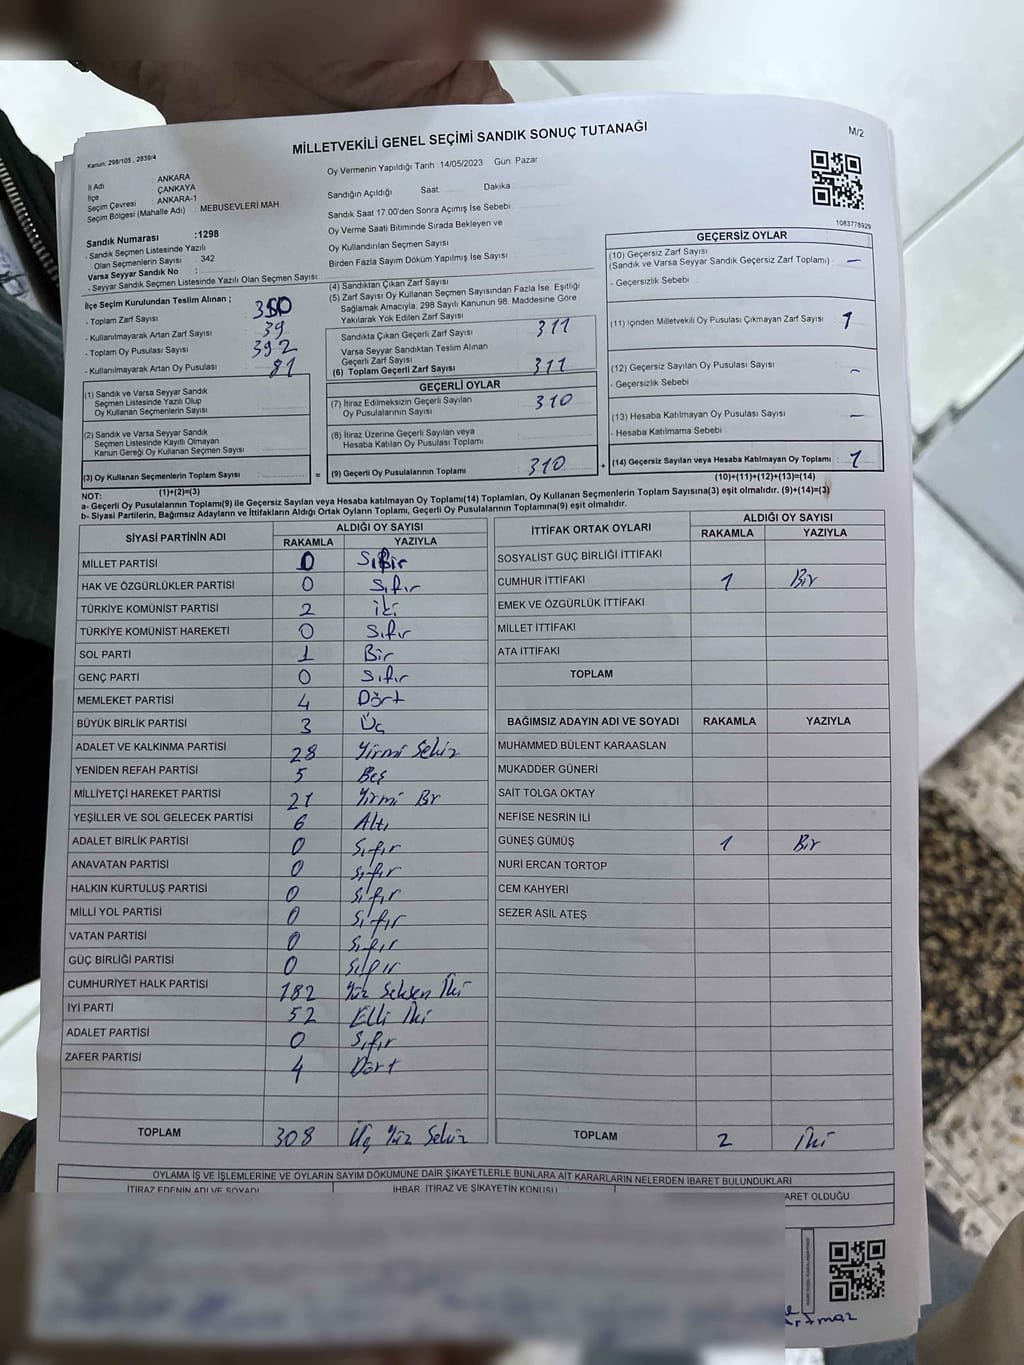 MİLLETVEKİLİ GENEL SEÇİMİ SANDIK SONUÇ TUTANAĞI
M/2
Kanun: 298/105 , 2839/4
İl Adı : ANKARA
İlçe : ÇANKAYA
Seçim Çevresi : ANKARA-1
Seçim Bölgesi (Mahalle Adı) : MEBUSEVLERİ MAH.
Sandık Numarası :1298
- Sandık Seçmen Listesinde Yazılı
Olan Seçmenlerin Sayısı : 342
Varsa Seyyar Sandık No :
- Seyyar Sandık Seçmen Listesinde Yazılı Olan Seçmen Sayısı:
Oy Vermenin Yapıldığı Tarih :14/05/2023 Gün: Pazar
Sandığın Açıldığı Saat Dakika
Sandık Saat 17.00'den Sonra Açımış İse Sebebi
Oy Verme Saati Bitiminde Sırada Bekleyen ve
Oy Kullandırılan Seçmen Sayısı
Birden Fazla Sayım Döküm Yapılmış İse Sayısı
1083778929
İlçe Seçim Kurulundan Teslim Alınan ;
- Toplam Zarf Sayısı :
- Kullanılmayarak Artan Zarf Sayısı : 39
- Toplam Oy Pusulası Sayısı : 392
- Kullanılmayarak Artan Oy Pusulası : 81
(1) Sandık ve Varsa Seyyar Sandık
Seçmen Listesinde Yazılı Olup
Oy Kullanan Seçmenlerin Sayısı :
(2) Sandık ve Varsa Seyyar Sandık
Seçmen Listesinde Kayıtlı Olmayan
Kanun Gereği Oy Kullanan Seçmen Sayısı :
(3) Oy Kullanan Seçmenlerin Toplam Sayısı : =
(1)+(2)=(3)
(4) Sandıktan Çıkan Zarf Sayısı
(5) Zarf Sayısı Oy Kullanan Seçmen Sayısından Fazla İse, Eşitliği
Sağlamak Amacıyla; 298 Sayılı Kanunun 98. Maddesine Göre
Yakılarak Yok Edilen Zarf Sayısı
Sandıkta Çıkan Geçerli Zarf Sayısı : 311
Varsa Seyyar Sandıktan Teslim Alınan
Geçerli Zarf Sayısı
(6) Toplam Geçerli Zarf Sayısı : 311
GEÇERLİ OYLAR
(7) İtiraz Edilmeksizin Geçerli Sayılan
Oy Pusulalarının Sayısı : 310
(8) İtiraz Üzerine Geçerli Sayılan veya
Hesaba Katılan Oy Pusulası Toplamı :
(9) Geçerli Oy Pusulalarının Toplamı : 310 +
GEÇERSİZ OYLAR
(10) Geçersiz Zarf Sayısı
(Sandık ve Varsa Seyyar Sandık Geçersiz Zarf Toplamı) : —
- Geçersizlik Sebebi :
(11) İçinden Milletvekili Oy Pusulası Çıkmayan Zarf Sayısı : 1
(12) Geçersiz Sayılan Oy Pusulası Sayısı : —
- Geçersizlik Sebebi
(13) Hesaba Katılmayan Oy Pusulası Sayısı : —
- Hesaba Katılmama Sebebi
(14) Geçersiz Sayılan veya Hesaba Katılmayan Oy Toplamı : 1
(10)+(11)+(12)+(13)=(14)
NOT:
a- Geçerli Oy Pusulalarının Toplamı(9) ile Geçersiz Sayılan veya Hesaba katılmayan Oy Toplamı(14) Toplamları, Oy Kullanan Seçmenlerin Toplam Sayısına(3) eşit olmalıdır. (9)+(14)=(3)
b- Siyasi Partilerin, Bağımsız Adayların ve İttifakların Aldığı Ortak Oyların Toplamı, Geçerli Oy Pusulalarının Toplamına(9) eşit olmalıdır.
SİYASİ PARTİNİN ADI ALDIĞI OY SAYISI
RAKAMLA YAZIYLA
MİLLET PARTİSİ 0
HAK VE ÖZGÜRLÜKLER PARTİSİ 0 Sıfır
TÜRKİYE KOMÜNİST PARTİSİ 2 iki
TÜRKİYE KOMÜNİST HAREKETİ 0 Sıfır
SOL PARTİ 1 Bir
GENÇ PARTİ 0 Sıfır
MEMLEKET PARTİSİ 4 Dört
BÜYÜK BİRLİK PARTİSİ 3 Üç
ADALET VE KALKINMA PARTİSİ 28 Yirmi Sekiz
YENİDEN REFAH PARTİSİ 5 Beş
MİLLİYETÇİ HAREKET PARTİSİ 21 Yirmi Bir
YEŞİLLER VE SOL GELECEK PARTİSİ 6 Altı
ADALET BİRLİK PARTİSİ 0 Sıfır
ANAVATAN PARTİSİ 0 Sıfır
HALKIN KURTULUŞ PARTİSİ 0 Sıfır
MİLLİ YOL PARTİSİ 0 Sıfır
VATAN PARTİSİ 0 Sıfır
GÜÇ BİRLİĞİ PARTİSİ 0 Sıfır
CUMHURİYET HALK PARTİSİ 182 Yüz Seksen İki
İYİ PARTİ 52 Elli İki
ADALET PARTİSİ 0 Sıfır
ZAFER PARTİSİ 4 Dört
TOPLAM 308 Üç Yüz Sekiz
İTTİFAK ORTAK OYLARI ALDIĞI OY SAYISI
RAKAMLA YAZIYLA
SOSYALİST GÜÇ BİRLİĞİ İTTİFAKI
CUMHUR İTTİFAKI 1 Bir
EMEK VE ÖZGÜRLÜK İTTİFAKI
MİLLET İTTİFAKI
ATA İTTİFAKI
TOPLAM
BAĞIMSIZ ADAYIN ADI VE SOYADI RAKAMLA YAZIYLA
MUHAMMED BÜLENT KARAASLAN
MUKADDER GÜNERİ
SAİT TOLGA OKTAY
NEFİSE NESRİN İLİ
GÜNEŞ GÜMÜŞ 1 Bir
NURİ ERCAN TORTOP
CEM KAHYERİ
SEZER ASİL ATEŞ
TOPLAM 2 İki
OYLAMA İŞ VE İŞLEMLERİNE VE OYLARIN SAYIM DÖKÜMÜNE DAİR ŞİKAYETLERLE BUNLARA AİT KARARLARIN NELERDEN İBARET BULUNDUKLARI
İTİRAZ EDENİN ADI VE SOYADI İHBAR, İTİRAZ VE ŞİKAYETİN KONUSU ARET OLDUĞU